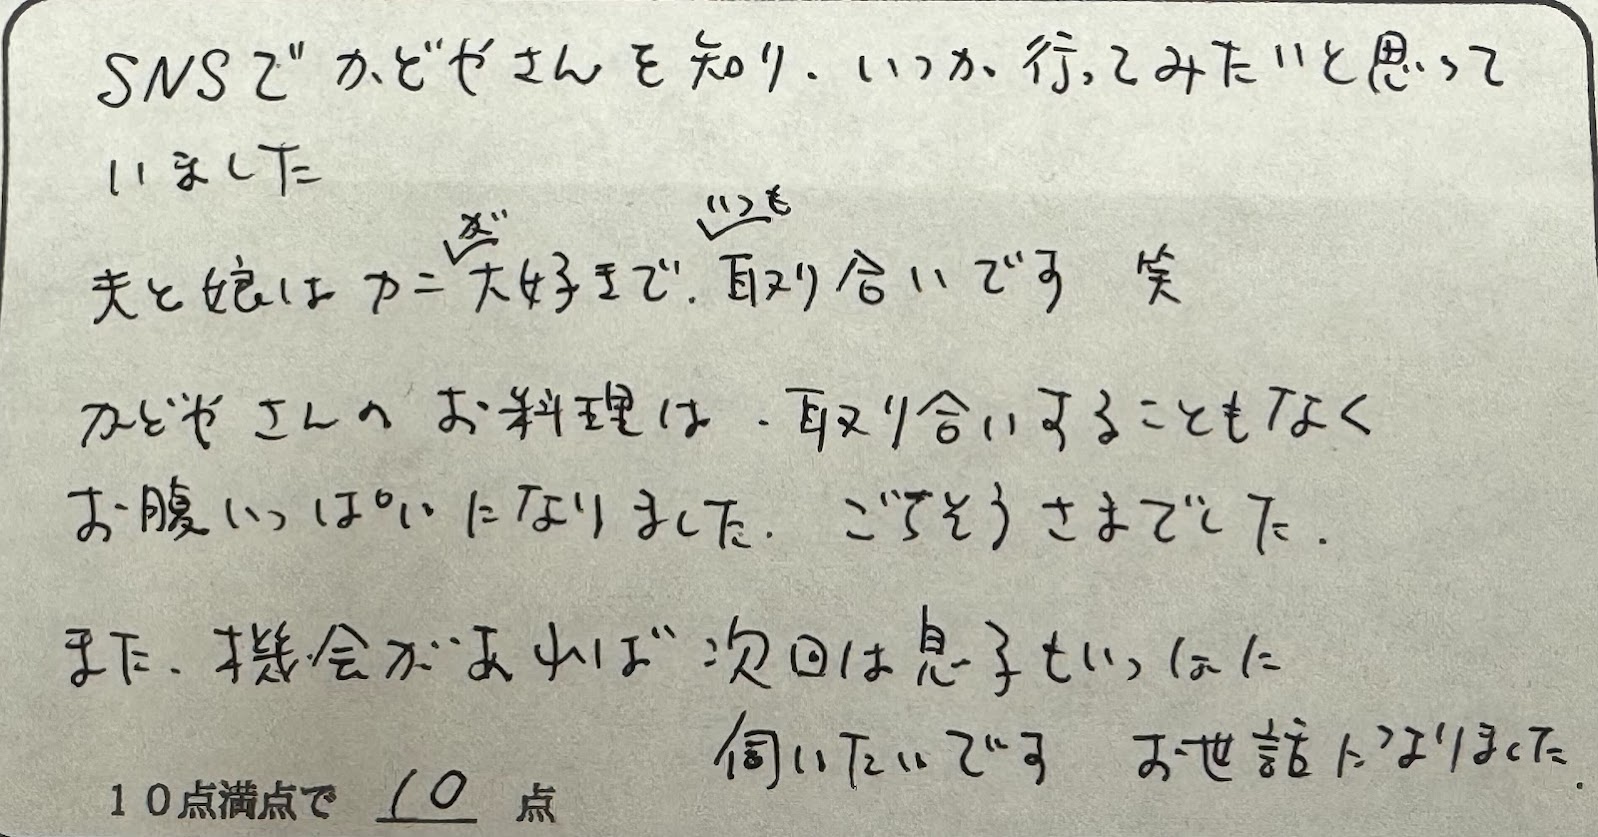 SNSでかどやさんを知り、いつか行ってみたいと思って
いました
夫と娘はカニが大好きで、いつも取り合いです 笑
かどやさんのお料理は、取り合いすることもなく
お腹いっぱいになりました。ごちそうさまでした。
また、機会があれば次回は息子もいっしょに
伺いたいです お世話になりました。
10点満点で 10 点